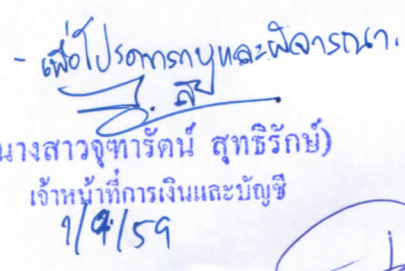 - เพื่อโปรดทราบและพิจารณา.
นางสาวจุฑารัตน์ สุทธิรักษ์)
เจ้าหน้าที่การเงินและบัญชี
1/9/59